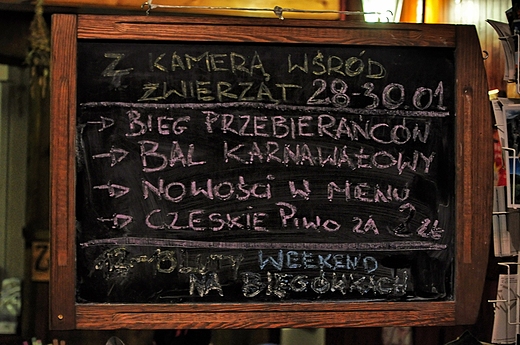 Z KAMERĄ WŚRÓD
ZWIERZĄT 28-30.01
→ BIEG PRZEBIERAŃCÓW
→ BAL KARNAWAŁOWY
→ NOWOŚCI W MENU
→ CZESKIE PIWO ZA 2 ZŁ
WEEKEND
NA BIEGÓWKACH